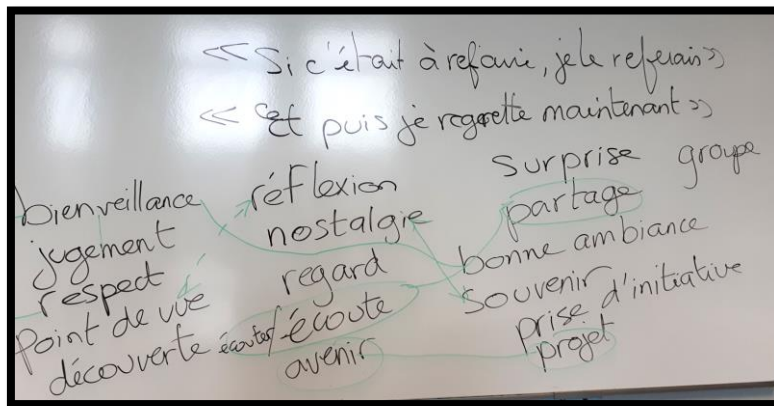 « Si c'était à refaire, je le referais »
« Et puis je regrette maintenant »
bienveillance
jugement
respect
Point de vue
découverte
réflexion
nostalgie
regard
écouter/écoute
avenir
surprise groupe
partage
bonne ambiance
souvenir
prise d'initiative
projet